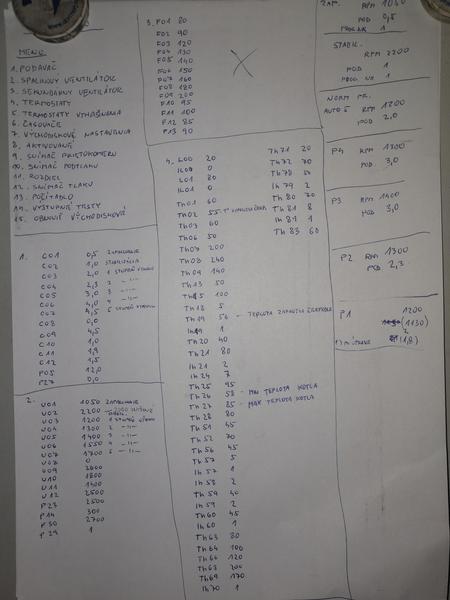 MENU
1. PODÁVAČ
2. SPALINOVÝ VENTILÁTOR
3. SEKUNDÁRNY VENTILÁTOR
4. TERMOSTATY
5. TERMOSTATY VYHASÍNANIA
6. ČASOVAČE
7. VÝCHODISKOVÉ NASTAVENIA
8. AKTIVOVANÉ
9. SNÍMAČ PRIETOKOMERU
10. SNÍMAČ PODTLAKU
11. ROZDIEL
12. SNÍMAČ TLAKU
13. POČÍTADLO
14. VÝSTUPNÉ TESTY
15. OBNOVIŤ VÝCHODISKOVÉ
1. C01 0,5 ZAPAĽOVANIE
C02 1,0 STABILIZÁCIA
C03 2,0 1 STUPEŇ VÝKONU
C04 2,3 2 -II-
C05 3,0 3 -II-
C06 4,0 4 -II-
C07 4,5 5 STUPEŇ
C08 0,0
C09 4,5
C10 1,0
C11 1,9
C12 1,5
P05 12,0
P27 0,0
2. U01 1050 ZAPAĽOVANIE
U02 2200
U03 1200 1 STUPEŇ VÝKONU
U04 1300 2 -II-
U05 1400 3 -II-
U06 1550 4 -II-
U07 1700 5 -II-
U08 0
U09 2600
U10 1800
U11 1400
U12 2500
P23 2500
P14 300
P30 2700
P29 1
3. F01 80
F02 90
F03 120
F04 130
F05 140
F06 150
F07 160
F08 180
F09 200
F10 95
F11 100
F12 85
P13 90
4. L00 20
IL00 0
L01 80
IL01 0
Th01 60
Th02 55
Th03 60
Th06 50
Th07 200
Th08 240
Th09 140
Th13 50
Th15 100
Th18 5
Th19 56 - TEPLOTA ZAPNUTIA ČERPADLA
Ih19 1
Th20 40
Th21 80
Ih21 2
Ih24 7
Th25 95
Th26 58 - MIN TEPLOTA KOTLA
Th27 85 - MAX TEPLOTA KOTLA
Th28 80
Th51 45
Th52 70
Th56 45
Th57 5
Ih57 1
Ih58 2
Th59 40
Ih59 2
Th60 45
Ih60 1
Th63 80
Th64 100
Th66 120
Th68 200
Th69 170
Ih70 1
Th71 20
Th72 70
Th78 50
Ih79 2
Th80 70
Th81 8
Ih81 1
Th83 60
ZAP. RPM 1050
POD 0,5
PROG. NR 1
STABIL.
RPM 2200
POD 1
PROG. NR 1
NORM PR.
AUTO 5 RPM 1800
POD 2,0
P4 RPM 1300
POD 3,0
P3 RPM 1400
POD 3,0
P2 RPM 1300
POD 2,3
P1 1200
(1130)
2
(1,8)